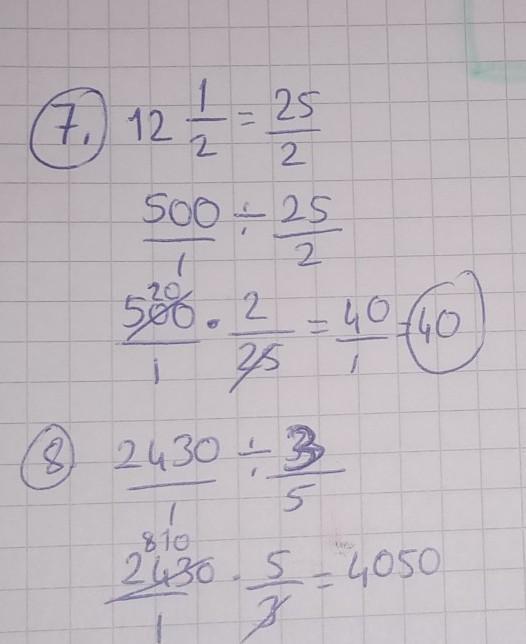 7. 12 1/2 = 25/2
500/1 ÷ 25/2
20
500/1 · 2/25 = 40/1 = 40
8 2430/1 ÷ 3/5
810
2430/1 · 5/3 = 4050